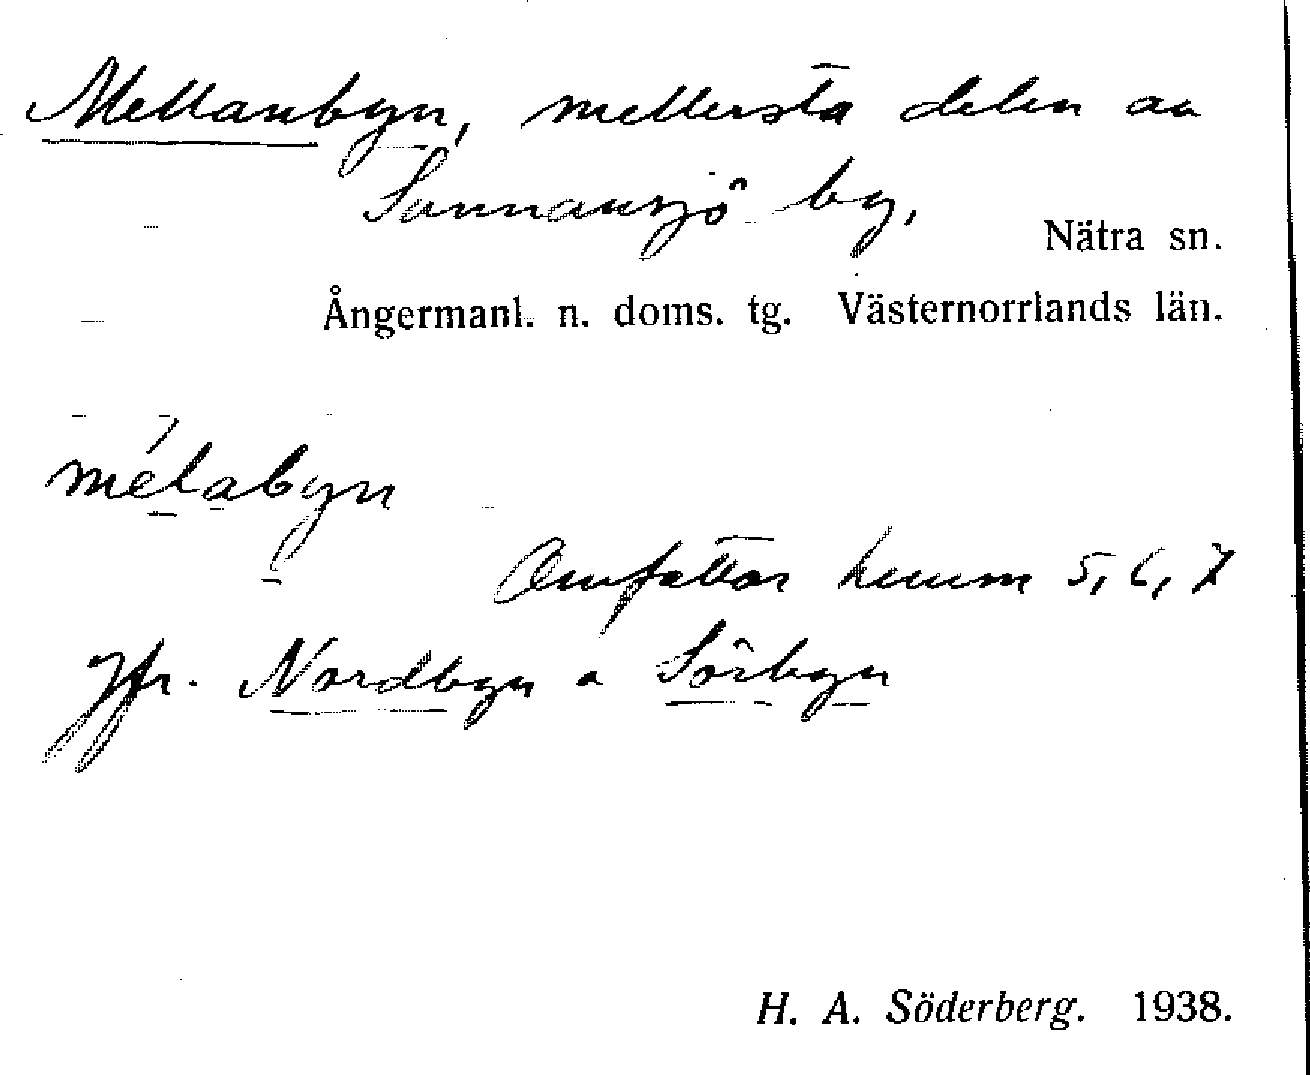 Mellanbyn, mellersta delen av
Sunnansjö by,
Nätra sn.
Ångermanl. n. doms. tg. Västernorrlands län.
mélabyn
Omfattar hemm 5, 6, 7
Jfr. Nordbyn o Sörbyn
H. A. Söderberg. 1938.